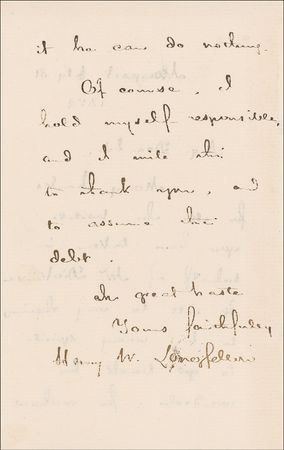 it he can do nothing.
Of course, I
hold myself responsible,
and I write this
to thank you, and
to assume the
debt.
In great haste
Yours faithfully
Henry W. Longfellow